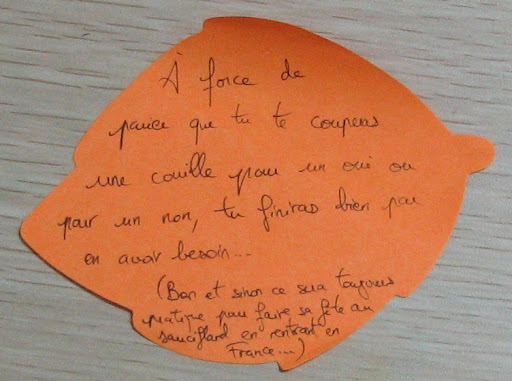 À force de
parier que tu te couperas
une couille pour un oui ou
pour un non, tu finiras bien par
en avoir besoin...
(Bon et sinon ce sera toujours
pratique pour faire sa fête au
sauciflard en rentrant en
France...)